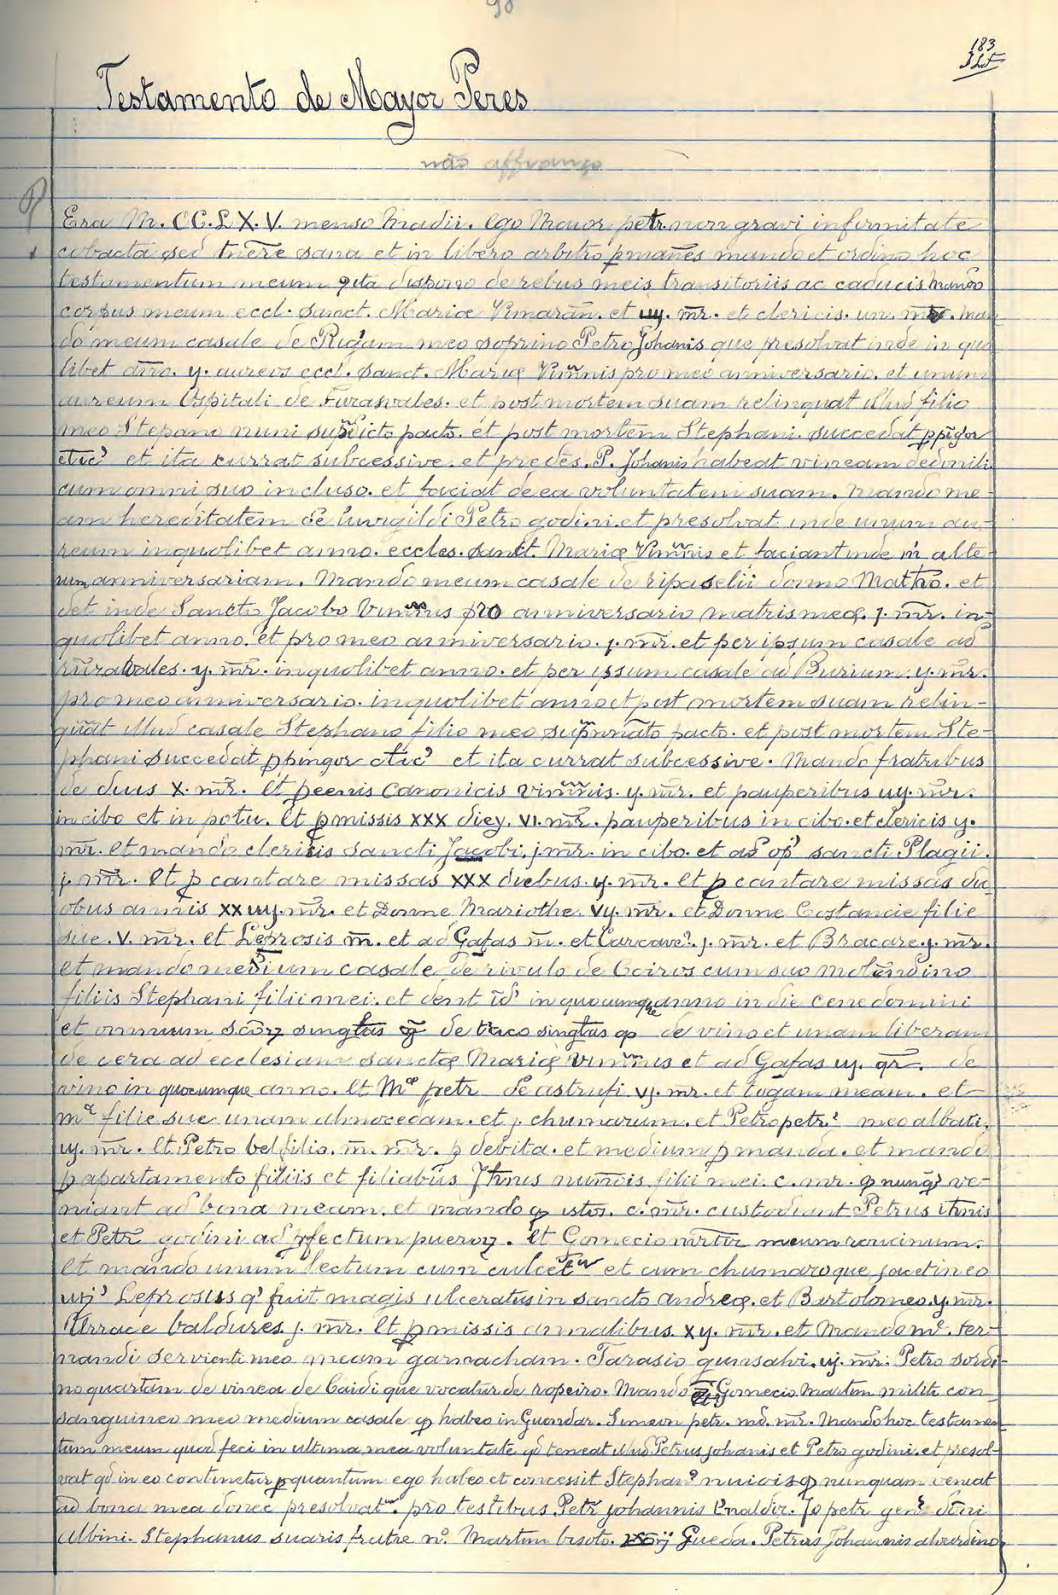 98
183
Testamento de Mayor Peres
não affranço
Era M. CC. L X. V. menso Madii. ego Maior petr. non gravi infirmitate
cohacta sed m̄ere sana et in libero arbitro p̱manēs mando et ordino hoc
testamentum meum qłta dispono de rebus meis transitoriis ac caducis Mando
corpus meum eccl. sanct. Mariæ Vimaran̄. et uy. m̄r. et clericis. un. m̄r. Man
do meum casale de Rigam meo soprino Petro Johanis que presolvat inde in quo
libet an̄o. y. aureos eccl. sanct. Marię Vim̄nis pro meo anniversario. et unum
aureum Ospitali de Furasvales. et post mortem suam relinquat illud filio
meo Stepano nuni sup̄dicto pacto. et post mortem Stephani. succedat p̱pīgor
et ita currat subcessive. et predcs. P. Johanis habeat vineam de donili
cum omni suo incluso. et faciat de ea voluntatem suam. Mando me-
am hereditatem de Unrgildi Petro godini. et presolvat inde unum au-
reum in quolibet anno. eccles. sanct. Marię Vim̄nis et faciant inde m̄ alte-
rum anniversariam. Mando meum casale de ripaselii domno Mathō. et
det inde Sancto Jacobo Vim̄nis pro anniversario matris meę. j. m̄r. in-
quolibet anno. et pro meo anniversario. j. m̄r. et per ipsum casale ad
y. m̄r. in quolibet anno. et per ipsum casale ad Burium. y. m̄r.
pro meo anniversario. in quolibet anno et post mortem suam relin-
quat illud casale Stephano filio meo sup̄nnato pacto. et post mortem Ste-
phani succedat p̱pingor et ita currat subcessive. Mando fratribus
de duis X. m̄r. Et canonicis vim̄nis. y. m̄r. et pauperibus uy. m̄r.
in cibo et in potu. Et p̱ missis XXX diey. VI. m̄r. pauperibus in cibo. et clericis y.
m̄r. Et mando clericis Sancti Jacobi. j. m̄r. in cibo. et ad op̄ sancti Plagii.
j. m̄r. Et p̱ cantare missas XXX diebus. y. m̄r. Et p̱ cantare missas du-
obus annis XX uy. m̄r. et Donne Mariothe. Vy. m̄r. et Donne Costancie filie
sue. V. m̄r. et Leprosis m̄. et ad Gafas m̄. et Carcave. j. m̄r. et Bracare. j. m̄r.
et mando medium casale de rivulo de Coiros cum suo molēndino
filiis Stephani filii mei. et dent in quocumque anno in die cene domini
et omnium singlas de vino et unam liberam
de cera ad ecclesiam sanctę Marię Vim̄nis et ad Gafas uy. q̄r. de
vino in quocumque anno. Et Mᵃ petr de astrufi vj. m̄r. et togam meam. et
mᵃ filie sue unam almocelam. et j. chumarum. et Petro petr. meo albati.
uy. m̄r. Et Petro bel filio. m̄. m̄r. p̱ debita. et medium p̱ manda. et mando
p̱ apartamento filiis et filiabus Jh̄nis nun̄cis filii mei. c. m̄r. q̱ nunq̄ ve-
niant ad bona meam. et mando q̱ istos. c. m̄r. custodiant Petrus ih̄nis
et Petr godini ad p̱fectum pueror. Et Gomecio m̄rtir meum roucinum.
Et mando unum lectum cum culcet et cum chumaro que jacet in eo
Leprosus q' fuit magis ulceratus in sancto Andreę. et Bertolomeo. y. m̄r.
Urrace baldures j. m̄r. Et p̱ missis annalibus. xy. m̄r. et Mando mᵉ. fer-
nandi servienti meo meam garnacham. Tarasio gunsalvi. uj. m̄r. Petro sordi-
no quartam de vinea de Caidi que vocatur de ropeiro. Mando Gomecio Martim militi con
sanguineo meo medium casale q̱ habeo in Guandar. Simeon petr. md. m̄r. Mando hoc testamen
tum meum quod feci in ultima mea voluntate qd teneat illud Petrus johanis et Petro godini. et presol-
vat qd in eo continetur p̱ quantum ego habeo et concessit Stephan nuiois q̱ nunquam veniat
ad bona mea donec presolvat. pro testibus Petr johannis Enaldir. Jo petr genr dn̄i
Albini. Stephanus suaris fratre nᵒ. Martim bisoto. Gueda. Petrus Johannis alvardino